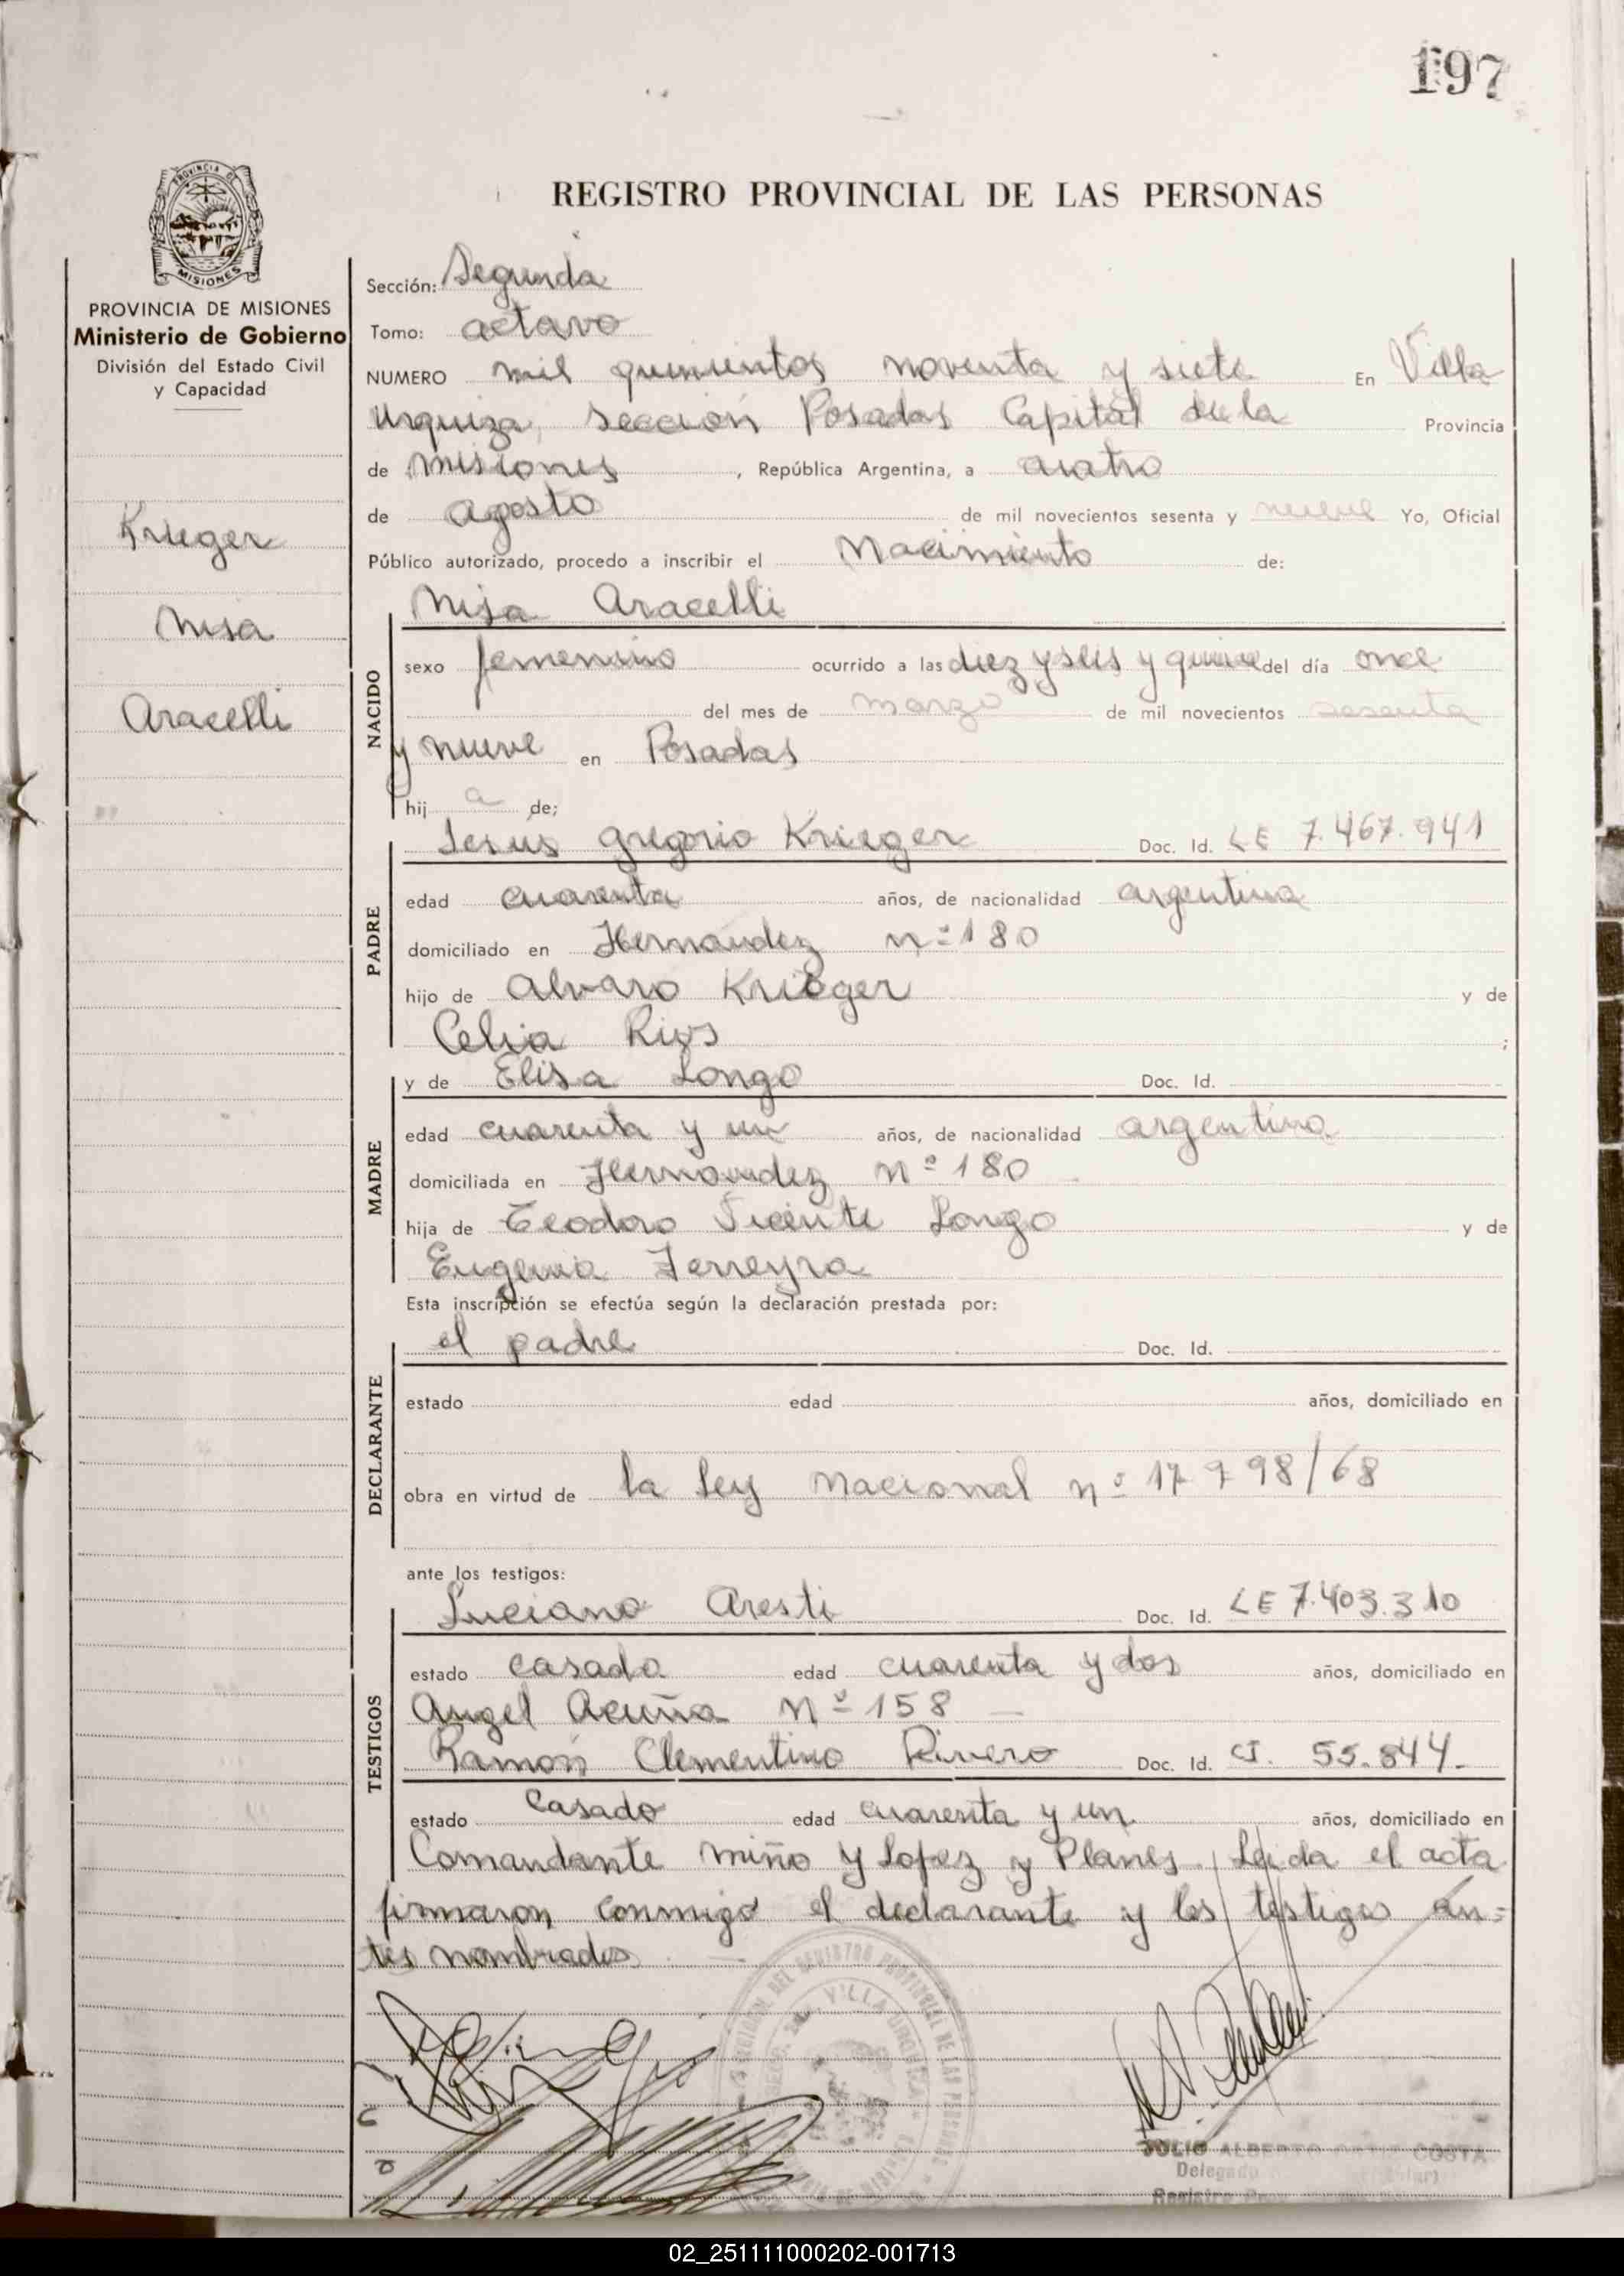 197
REGISTRO PROVINCIAL DE LAS PERSONAS
PROVINCIA DE MISIONES
Ministerio de Gobierno
División del Estado Civil
y Capacidad
Krieger
Nisa
Aracelli
Sección: Segunda
Tomo: octavo
NUMERO mil quinientos noventa y siete En Villa
Urquiza, Sección Posadas Capital de la Provincia
de Misiones, República Argentina, a cuatro
de agosto de mil novecientos sesenta y nueve Yo, Oficial
Público autorizado, procedo a inscribir el Nacimiento de:
Nisa Aracelli
NACIDO
sexo femenino ocurrido a las diez y seis y quince del día once
del mes de marzo de mil novecientos sesenta
y nueve en Posadas
hij a de;
Jesus Gregorio Krieger Doc. Id. LE 7.467.941
PADRE
edad cuarenta años, de nacionalidad argentina
domiciliado en Hernandez nº 180
hijo de Alvaro Krieger y de
Celia Rios ;
y de Elisa Longo Doc. Id.
MADRE
edad cuarenta y un años, de nacionalidad argentina
domiciliada en Hernandez nº 180
hija de Teodoro Vicente Longo y de
Eugenia Ferreyra
Esta inscripción se efectúa según la declaración prestada por:
el padre Doc. Id.
DECLARANTE
estado edad años, domiciliado en
obra en virtud de la Ley Nacional nº 17798/68
ante los testigos:
Luciano Aresti Doc. Id. LE 7.403.310
TESTIGOS
estado casado edad cuarenta y dos años, domiciliado en
Angel Acuña Nº 158
Ramón Clementino Rivero Doc. Id. CI. 55.844.
estado Casado edad cuarenta y un años, domiciliado en
Comandante Miño y Lopez y Planes. Leida el acta
firmaron conmigo el declarante y los testigos an=
tes nombrados
VILLA URQUIZA
JULIO ALBERTO ORTIZ COSTA
Delegado
Registro
02_251111000202-001713